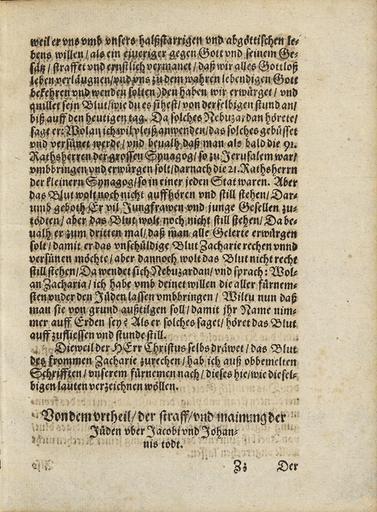 weil er vns vmb vnsers halßstarrigen vnd abgöttischen le-
bens willen / als ein eyueriger gegen Gott vnd seinem Ge-
sätz / straffet vnd ernstlich vermanet / daß wir alles Gottloß
leben verläugnen / vnd vns zu dem wahren lebendigen Gott
bekehren vnd wenden solten) den haben wir erwürget / vnd
quillet sein Blut / wie du es sihest / von derselbigen stund an /
biß auff den heutigen tag. Da solches Nebuzardan hörete /
sagt er: Wolan ich wil vleiß anwenden / das solches gebüsset
vnd versünet werde / vnd beualh / daß man als bald die 91.
Rathsherren der grossen Synagog / so zu Jerusalem war /
vmbbringen vnd erwürgen solt / darnach die 21. Rathsherrn
der kleinern Synagog / so in einer jeden Stat waren. Aber
das Blut wolt noch nicht auffhören vnd still stehen / Dar-
umb geboth Er vil Jungfrawen vnd junge Gesellen zu-
tödten / aber das Blut wolt noch nicht still stehen / Da be-
ualh er zum dritten mal / daß man alle Gelerte erwürgen
solt / damit er das vnschüldige Blut Zacharie rechen vnnd
versünen möchte / aber dannoch wolt das Blut nicht recht
still stehen / Da wendet sich Nebuzardan / vnd sprach: Wol-
an Zacharia / ich habe vmb deinet willen die aller fürnem-
sten vnder den Jüden lassen vmbbringen / Wiltu nun daß
man sie von grund außtilgen soll / damit ihr Name nim-
mer auff Erden sey? Als er solches saget / höret das Blut
auff zufliessen vnd stunde still.
Dieweil der HErr Christus selbs dräwet / das Blut
des frommen Zacharie zurechen / hab ich auß obbemelten
Schrifften / vnserem fürnemen nach / dieses hie / wie dieselbigen
bigen lauten verzeichnen wöllen.
Von dem vrtheil / der straff / vnd mainung der
Jüden vber Jacobi vnd Johan-
nis todt.
Der